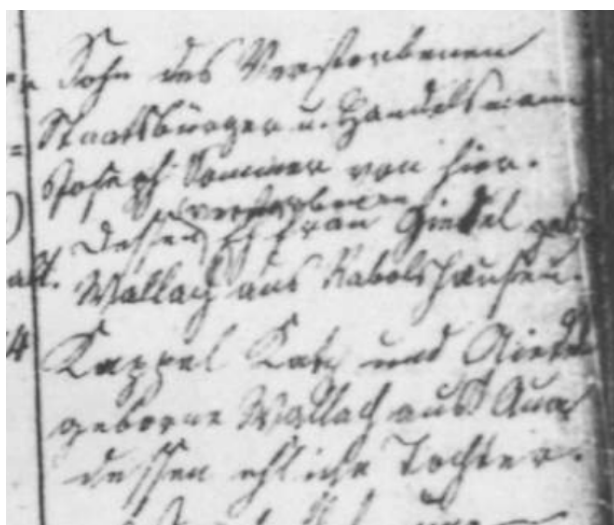 Sohn des Verstorbenen
Staatsbürger u. Handelsmann
Joseph Sommer von hier.
verstorbenen
dessen Ehfrau Giedel geb.
alt. Wallach aus Rabolshausen.
4 Kappel Katz und Giedel
geborne Wallach aus Aua
dessen ehliche Tochter.